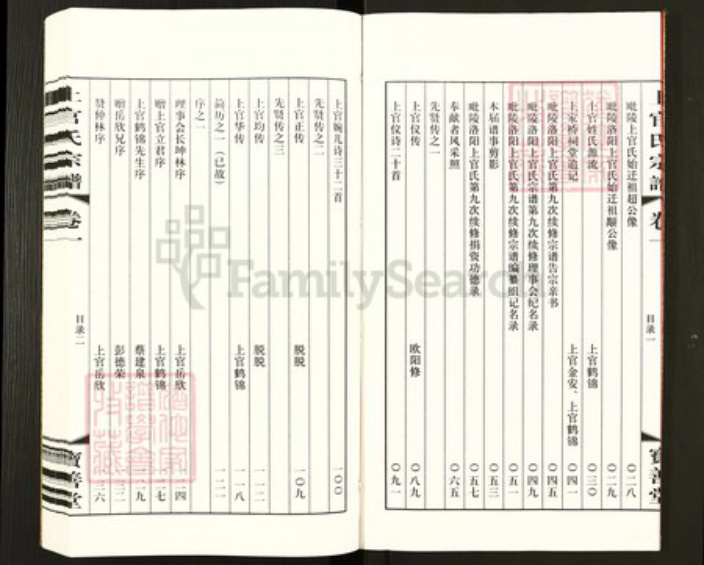 上官氏宗譜 卷一 目录一 寶善堂
毗陵上官氏始迁祖超公像 〇二八
毗陵洛阳上官氏始迁祖颙公像 〇二九
上官姓氏源流 上官鹤锦 〇三〇
上家桥祠堂造记 上官金安、上官鹤锦 〇四一
毗陵洛阳上官氏第九次续修宗谱告宗亲书 〇四五
毗陵洛阳上官氏宗谱第九次续修理事会纪名录 〇四九
毗陵洛阳上官氏第九次续修宗谱编纂组记名录 〇五一
本届谱事剪影 〇五三
毗陵洛阳上官氏第九次续修捐资功德录 〇五七
奉献者风采照 〇六五
先贤传之一
上官仪传 欧阳修 〇八九
上官仪诗二十首 〇九一
上官婉儿诗三十二首 一〇〇
先贤传之二
上官正传 脱脱 一〇九
先贤传之三
上官均传 脱脱 一一二
上官华传 上官鹤锦 一一八
简历之一（已故） 一二一
序之一
理事会长坤林序 上官岳欣 一二四
赠上官立君序 上官鹤锦 一二七
上官鹤锦先生序 蔡建泉 一二九
赠岳欣兄序 彭德荣 一三二
贤仲林序 上官岳欣 一三六
上官氏宗譜 卷一 目录二 寶善堂
FamilySearch